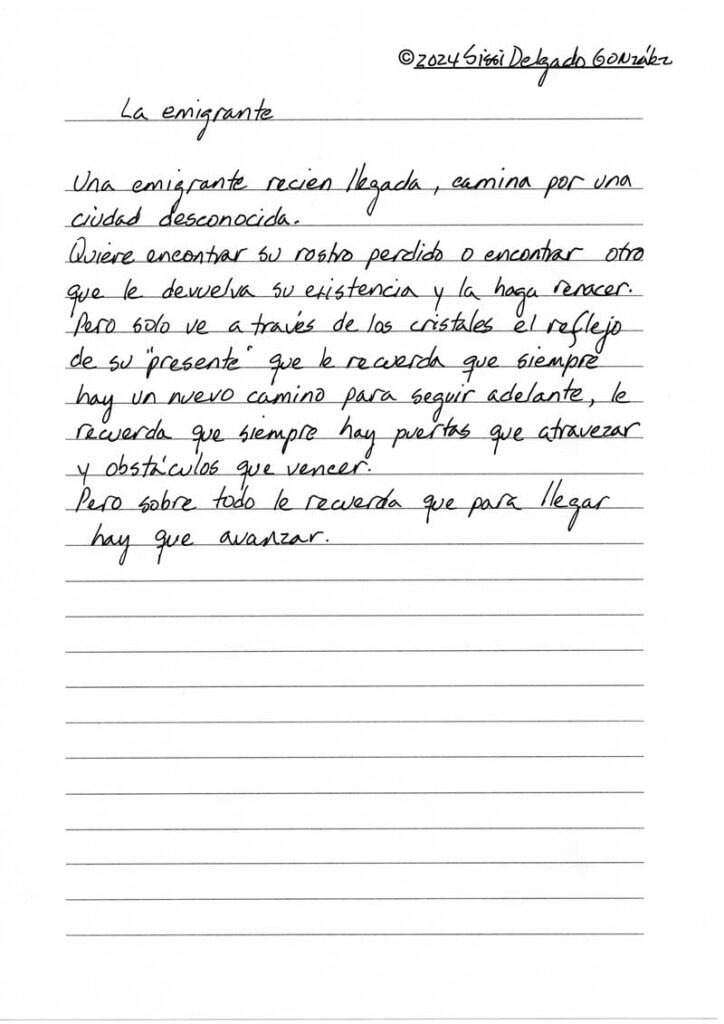 ©2024 Sissi Delgado González
La emigrante
Una emigrante recien llegada, camina por una
ciudad desconocida.
Quiere encontrar su rostro perdido o encontrar otro
que le devuelva su existencia y la haga renacer.
Pero solo ve a través de los cristales el reflejo
de su "presente" que le recuerda que siempre
hay un nuevo camino para seguir adelante, le
recuerda que siempre hay puertas que atravezar
y obstáculos que vencer.
Pero sobre todo le recuerda que para llegar
hay que avanzar.